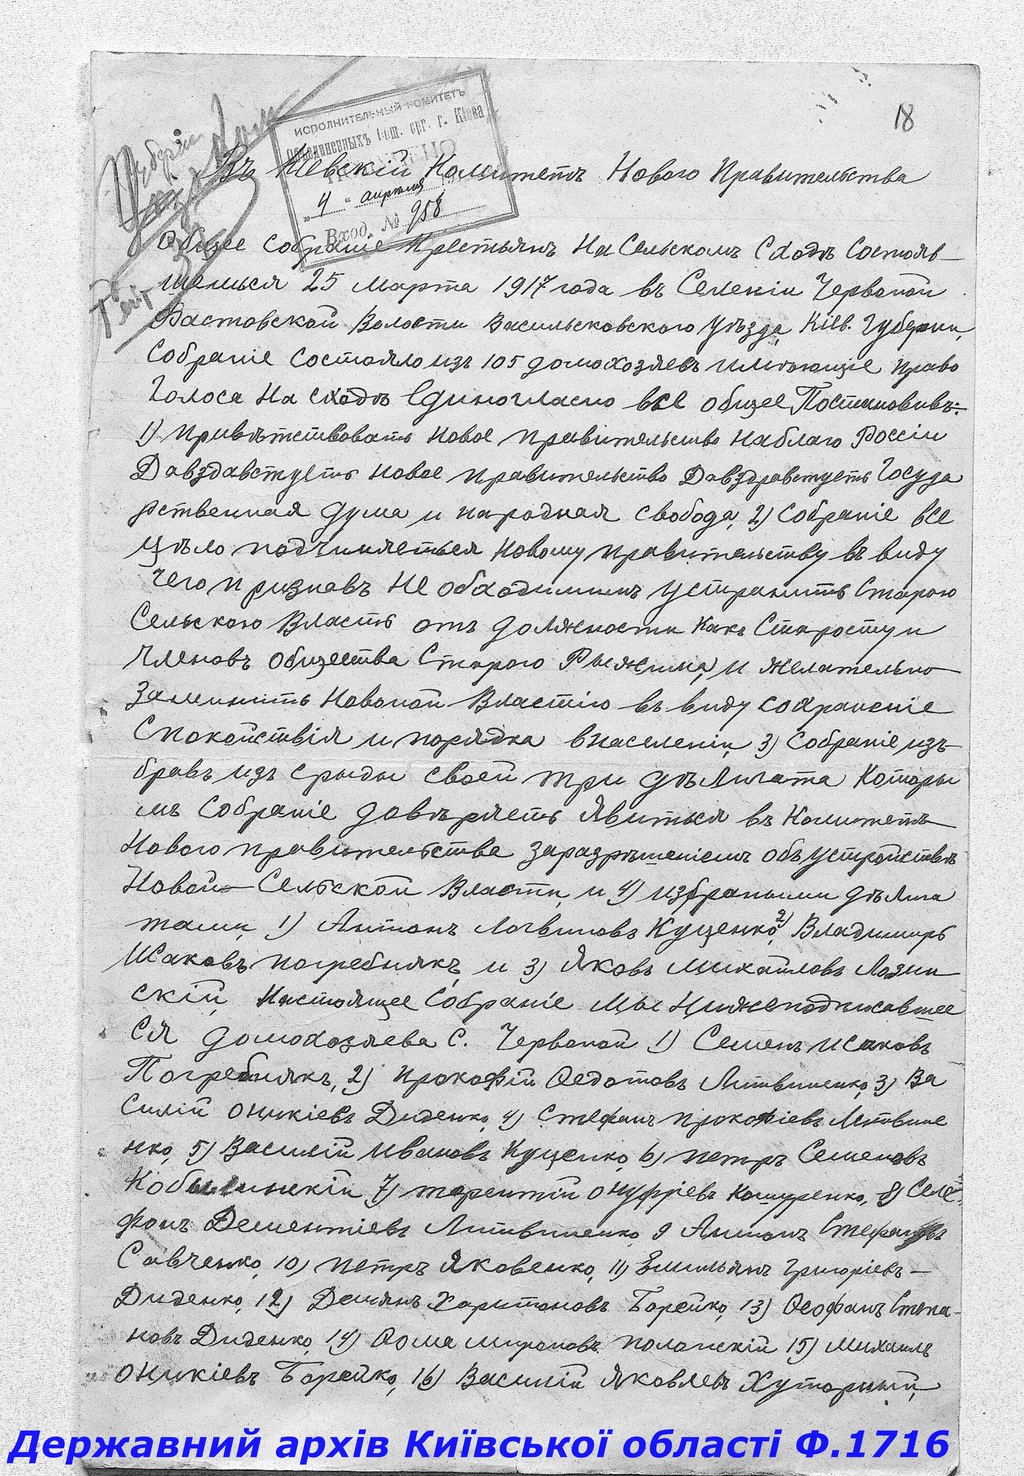 18
ИСПОЛНИТЕЛЬНЫЙ КОМИТЕТЪ
Объединенныхъ Общ. орг. г. Кіева
ПОЛУЧЕНО
„4“ апреля
Вход. № 958
Въ Кіевскій Комитетъ Новаго Правительства
Общее собраніе Крестьянъ На Сельскомъ Сходѣ Состояв-
шемься 25 Марта 1917 года въ Селеніи Червоной
Фастовской Волости Васильковского уѣзда, Кіев. Губерніи,
Собраніе состояло изъ 105 домохозяевъ имѣющіе право
Голоса На сходѣ Единогласно все общее Постановивъ:
1) Привѣтствовать Новое правительство На благо Россіи
Давздавствуетъ Новое правительство Давздравствуетъ Госуда
рственная Дума и народная свобода, 2) Собраніе все
цѣло подчиняеться Новому правительству въ виду
чего признавъ Не обходимымъ устранить Старою
Сельскою Власть отъ должности Какъ Старосту и
членовъ общества Старого Рыжима, и желательно
заменить Новоной Властію въ виду сохраненіе
Спокойствія и порядка в населеніи, 3) Собраніе из-
бравъ изъ среды своей три дѣлигата Которы
мъ Собраніе довѣряетъ явиться въ Комитетъ
Нового правительства заразрѣшеніемъ объ устройствѣ
Новой Сельской Власти, и 4) избраными дѣлига
тами, 1) Антонъ Логвиновъ Куценко, 2) Владимиръ
Исаковъ погребнякъ, и 3) Яковъ Михайловъ Лозин
скій, Настоящее Собраніе Мы Нижеподписавшее
ся домохозяева С. Червоной 1) Семенъ Исаковъ
Погребнякъ, 2) Прокофій Федотовъ Литвиненко, 3) Ва
силій Оникіевъ Диденко, 4) Стефанъ Прокофіевъ Литвине
нко, 5) Василій Ивановъ Куценко, 6) петръ Семеновъ
Кобылинскій 7) терентій Онуфріевъ Кошуренко, 8) Селе
фонъ Дементіевъ Литвиненко, 9 Антонъ Стефановъ
Савченко, 10) петръ Яковенко, 11) Емильянъ Григоріевъ
Диденко, 12) Демянъ Харитоновъ Борейко, 13) Феофанъ Степа-
новъ Диденко, 14) Фома Мироновъ полонскій 15) Михаилъ
Оникіевъ Борейко, 16) Василій Яковлевъ Хуторный,
Державний архів Київської області Ф.1716